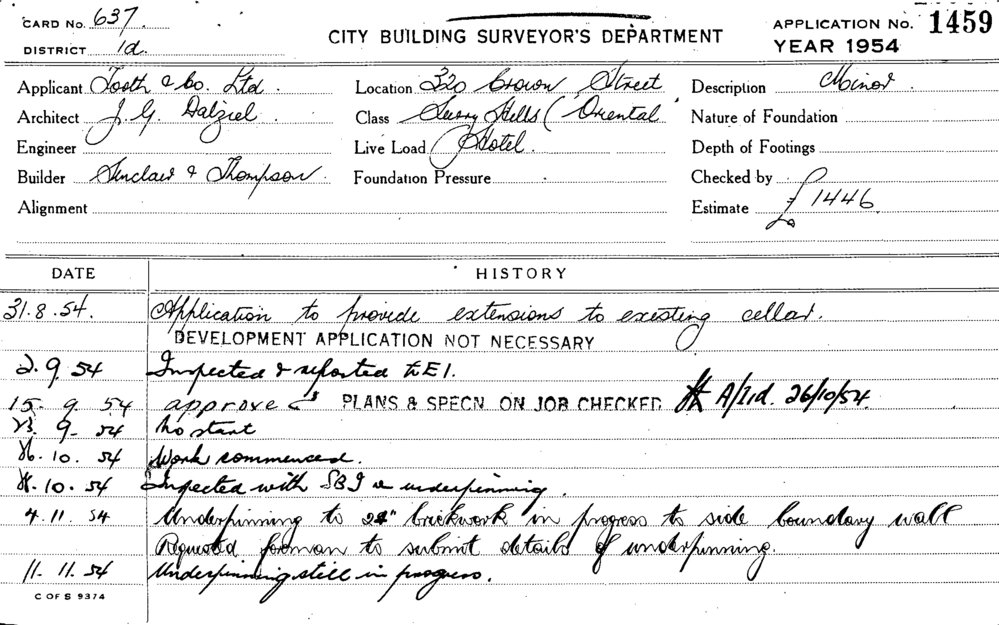 CARD No. 637
DISTRICT 1d.
CITY BUILDING SURVEYOR'S DEPARTMENT
APPLICATION No. 1459
YEAR 1954
Applicant Tooth & Co. Ltd. Location 320 Crown Street Description Minor
Architect J. G. Dalziel. Class Surry Hills (Oriental Nature of Foundation
Engineer Live Load Hotel. Depth of Footings
Builder Sinclair & Thompson. Foundation Pressure Checked by
Alignment Estimate £1446.
DATE HISTORY
31.8.54. Application to provide extensions to existing cellar.
DEVELOPMENT APPLICATION NOT NECESSARY
2.9.54 Inspected & reported to E1.
15.9.54 approved PLANS & SPECN ON JOB CHECKED A/1d. 26/10/54.
23.9.54 No start
10.54 Work commenced.
10.54 Inspected with SBI re underpinning.
4.11.54 Underpinning to brickwork in progress to side boundary wall
Requested forman to submit details of underpinning.
11.11.54 Underpinning still in progress.
C OF S 9374